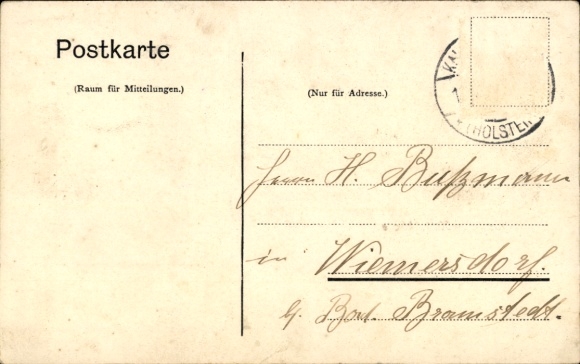 Postkarte
(Raum für Mitteilungen.)
(Nur für Adresse.)
(HOLSTEIN
Herrn H. Bußmann
in Wiemersdorf.
b. Bad. Bramstedt.